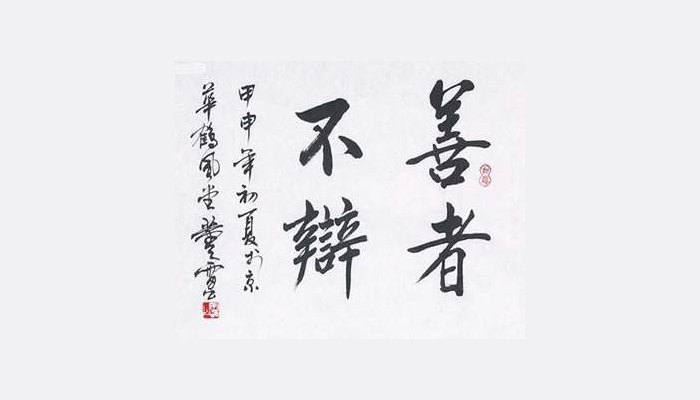 善者
不辩
甲申年初夏於京
華鶴風堂